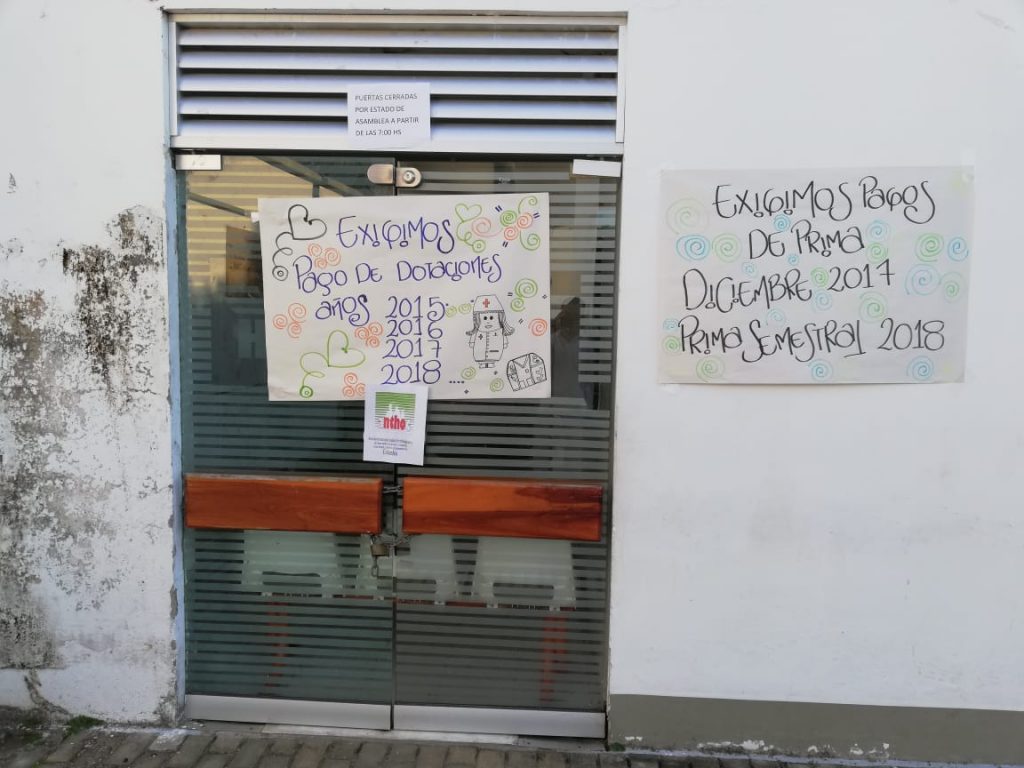 PUERTAS CERRADAS
POR ESTADO DE
ASAMBLEA A PARTIR
DE LAS 7:00 HS
EXIGIMOS
PAGO DE DOTACIONES
AÑOS 2015
2016
2017
2018 ....
ntho
EXIGIMOS PAGOS
DE PRIMA
DICIEMBRE 2017
PRIMA SEMESTRAL 2018